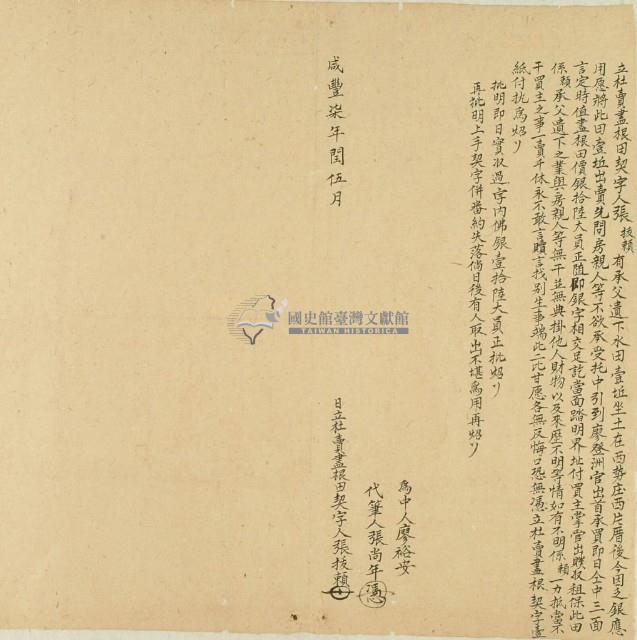 立杜賣盡根田契字人張拔賴有承父遺下水田壹坵坐土在西勢庄西片厝後今因乏銀應
用愿將此田壹坵出賣先問房親人等不欲承受托中引到廖登洲官出首承買即日仝中三面
言定時值盡根田價銀拾陸大員正隨即銀字相交足訖當面踏明界址付買主掌管出贌收租保此田
係賴承父遺下之業與房親人等無干並無典掛他人財物以及來歷不明等情如有不明係賴一力抵當不
干買主之事一賣千休永不敢言贖言找別生事端此二比甘愿各無反悔口恐無憑立杜賣盡根契字壹
紙付执為炤
批明即日實收過字內佛銀壹拾陸大員正批炤
再批明上手契字併番約失落倘日後有人取出不堪為用再炤
咸豐柒年閏伍月
為中人廖裕安
代筆人張尚年憑
日立杜賣盡根田契字人張拔賴
國史館臺灣文獻館
TAIWAN HISTORICA